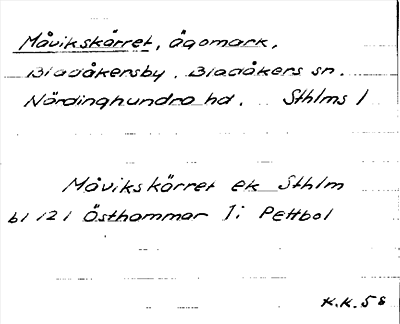 Måvikskärret, ägomark,
Bladåkersby. Bladåkers sn.
Närdinghundra hd. Sthlms l
Måvikskärret ek Sthlm
bl 121 Östhammar 1: Pettbol
K.K. 58